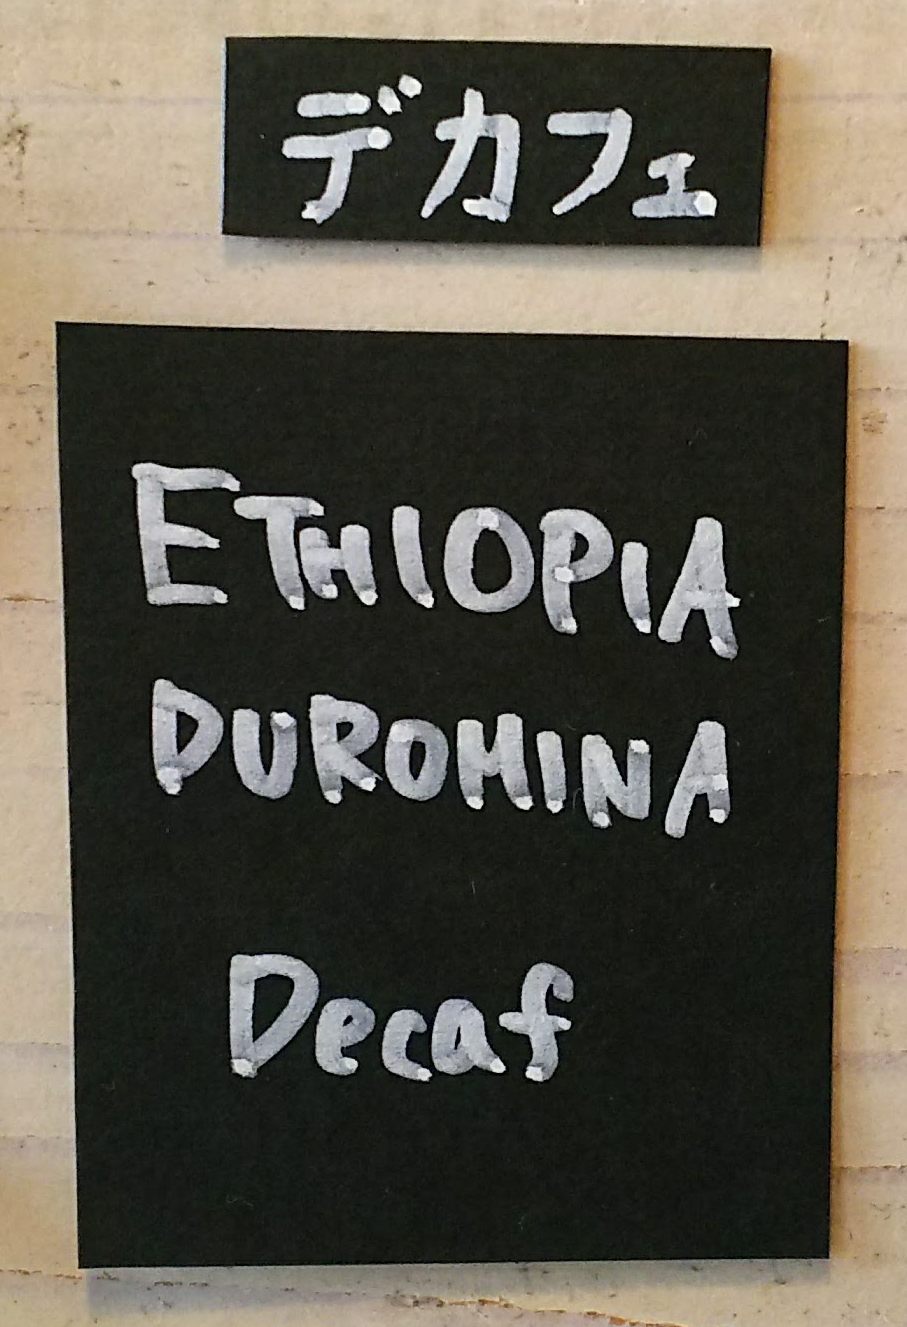 デカフェ
ETHIOPIA
DUROMINA
Decaf